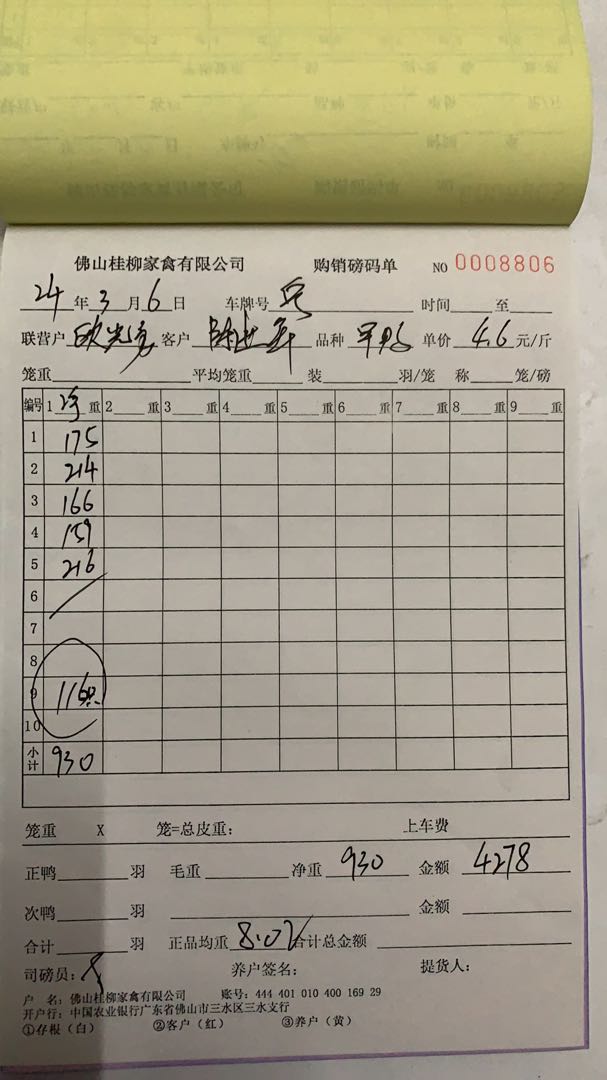 佛山桂柳家禽有限公司 购销磅码单 NO 0008806
24年3月6日 车牌号 时间 至
联营户 欧光 客户 陈进 品种 旱鸭 单价 4.6 元/斤
笼重 平均笼重 装 羽/笼 称 笼/磅
编号 1 净 重 2 重 3 重 4 重 5 重 6 重 7 重 8 重 9 重
1 175
2 214
3 166
4 159
5 216
6
7
8
9 116只
10
小计 930
笼重 X 笼=总皮重: 上车费
正鸭 羽 毛重 净重 930 金额 4278
次鸭 羽 金额
合计 羽 正品均重 8.02 合计总金额
司磅员: 养户签名: 提货人:
户 名: 佛山桂柳家禽有限公司 账号: 444 401 010 400 169 29
开户行: 中国农业银行广东省佛山市三水区三水支行
①存根(白) ②客户(红) ③养户(黄)